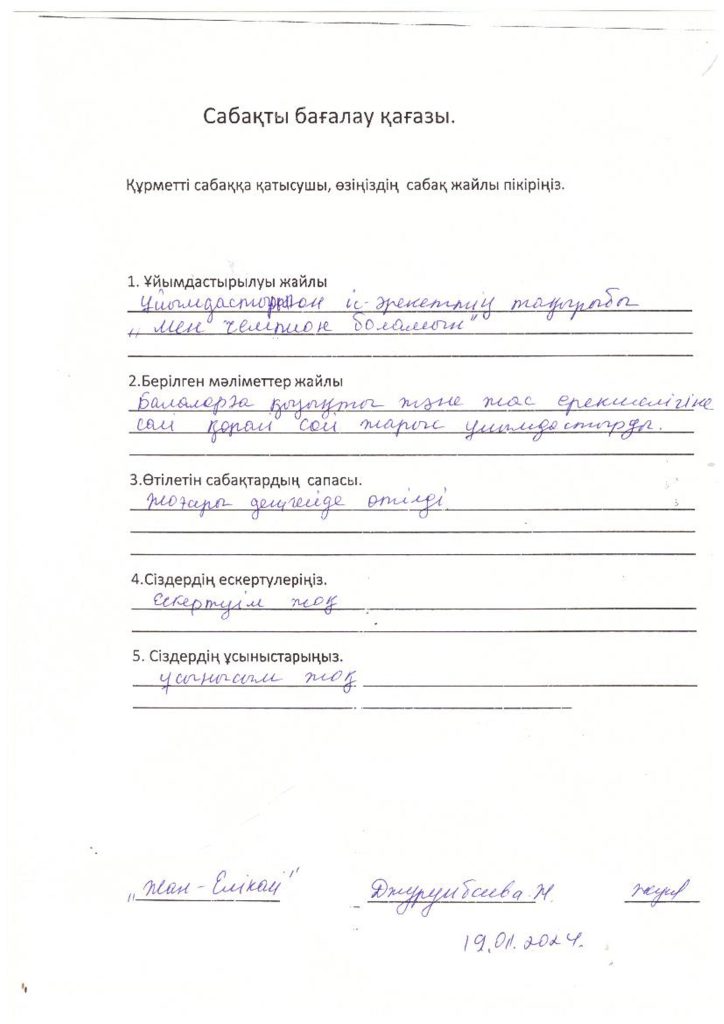 Сабақты бағалау қағазы.
Құрметті сабаққа қатысушы, өзіңіздің сабақ жайлы пікіріңіз.
1. Ұйымдастырылуы жайлы
Ұйымдастырған іс-әрекеттің тақырыбы
„Мен чемпион боламын"
2.Берілген мәліметтер жайлы
Балаларға қызықты және жас ерекшелігіне
сай қарай сай жарыс ұйымдастырды.
3.Өтілетін сабақтардың сапасы.
Жоғары деңгейде өтілді
4.Сіздердің ескертулеріңіз.
Ескертуім жоқ
5. Сіздердің ұсыныстарыңыз.
Ұсынысым жоқ
„Жан-Елікай" Н.
19.01.2024.